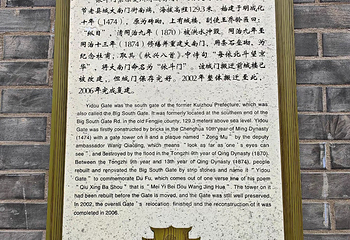 节老县城大南门街南端，海拔高度129.3米。始建于明成化
十年（1474），原为砖砌，上有城楼，副使王乔龄匾曰：
"纵目"。清同治九年（1870）被洪水冲毁，同治九年至
同治十三年（1874）修缮并重建大南门，用条石垒砌，为
纪念杜甫，取其《秋兴八首》中诗句"每依北斗望京
华"，将大南门命名为"依斗门"。该城门搬迁前城楼已
被改建，但城门保存完好。2002年整体搬迁至此，
2006年完成复建。
Yidou Gate was the south gate of the former Kuizhou Prefecture, which was
also called the Big South Gate. It was formerly located at the southern end of the
Big South Gate Rd. in the old Fengjie county, 129.3 meters above sea level. Yidou
Gate was firstly constructed by bricks in the Chenghua 10th year of Ming Dynasty
(1474) with a gate tower on it and a plaque named " Zong Mu " by the deputy
ambassador Wang Qiaoling, which means " look as far as one's eyes can
see", and destroyed by the flood in the Tongzhi 9th year of Qing Dynasty (1870).
Between the Tongzhi 9th year and 13th year of Qing Dynasty (1874), people
rebuild and renovated the Big South Gate by strip stones and name it "Yidou
Gate" to commemorate Du Fu, which comes out of one verse line of his poem
"Qiu Xing Ba Shou" that is "Mei Yi Bei Dou Wang Jing Hua". The tower on it
had been rebuilt before the Gate is moved, and the Gate was still well preserved.
In 2002, the overall Gate's relocation finished and the reconstruction of it was
completed in 2006.